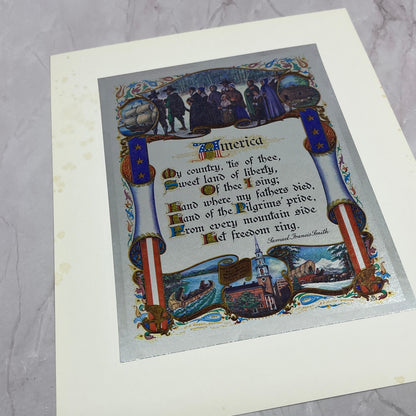 America
My country, 'tis of thee,
Sweet land of liberty,
Of thee I sing;
Land where my fathers died,
Land of the Pilgrims' pride,
From every mountain side
Let freedom ring.
Samuel Francis Smith